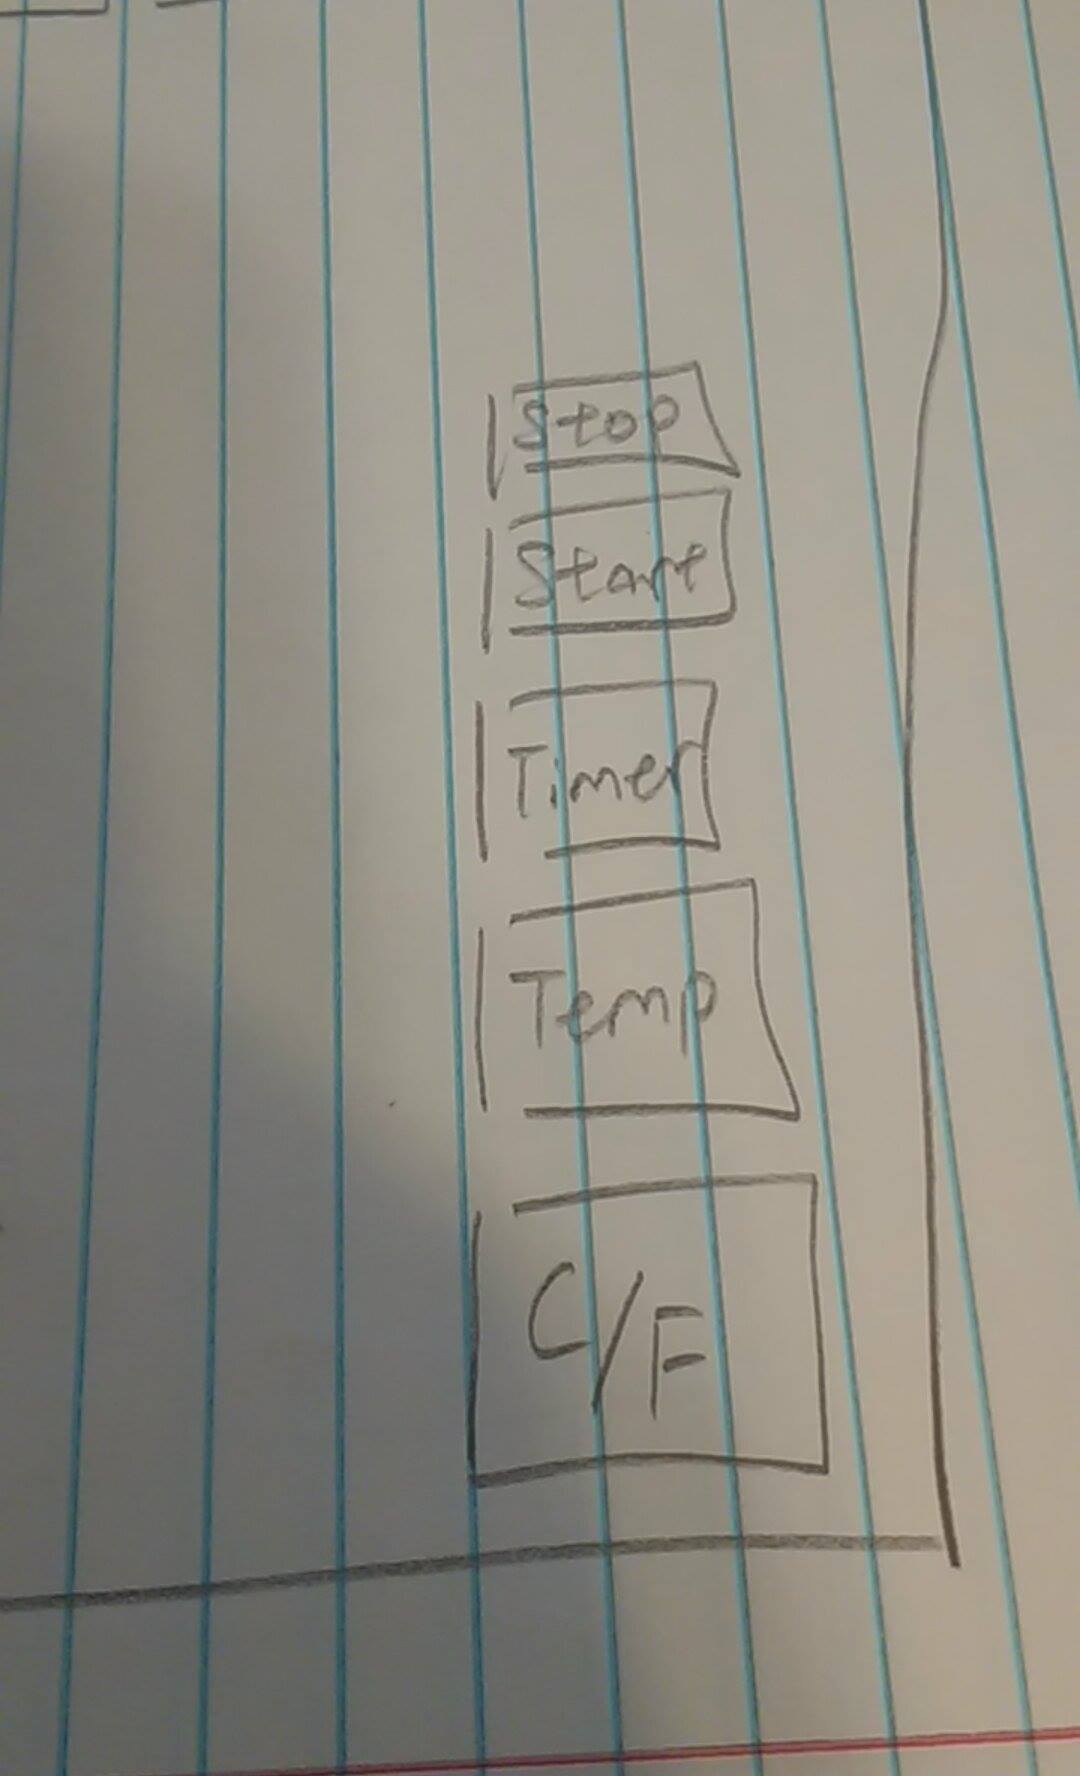 Stop
Start
Timer
Temp
C/F